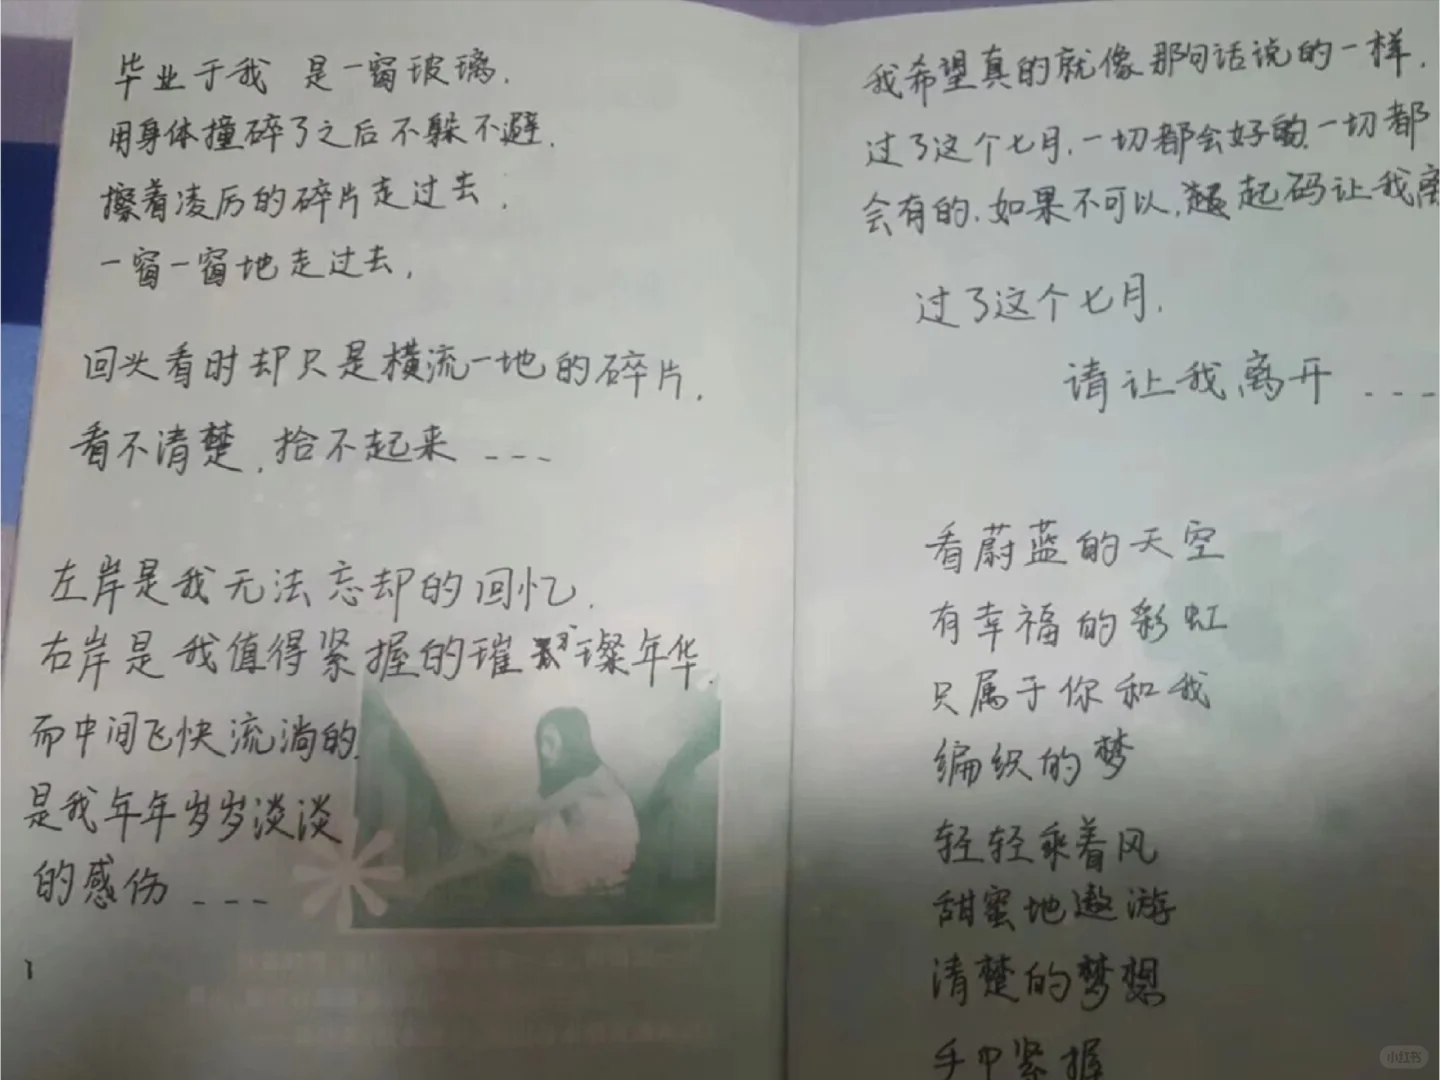 毕业于我 是一窗玻璃.
用身体撞碎了之后不躲不避.
擦着凌厉的碎片走过去,
一窗一窗地走过去,
回头看时却只是横流一地的碎片,
看不清楚,拾不起来---
左岸是我无法忘却的回忆.
右岸是我值得紧握的璀璨年华.
而中间飞快流淌的.
是我年年岁岁淡淡
的感伤---
我希望真的就像那句话说的一样.
过了这个七月,一切都会好的.一切都
会有的.如果不可以,起码让我离
过了这个七月.
请让我离开---
看蔚蓝的天空
有幸福的彩虹
只属于你和我
编织的梦
轻轻乘着风
甜蜜地遨游
清楚的梦想
手中紧握
小红书